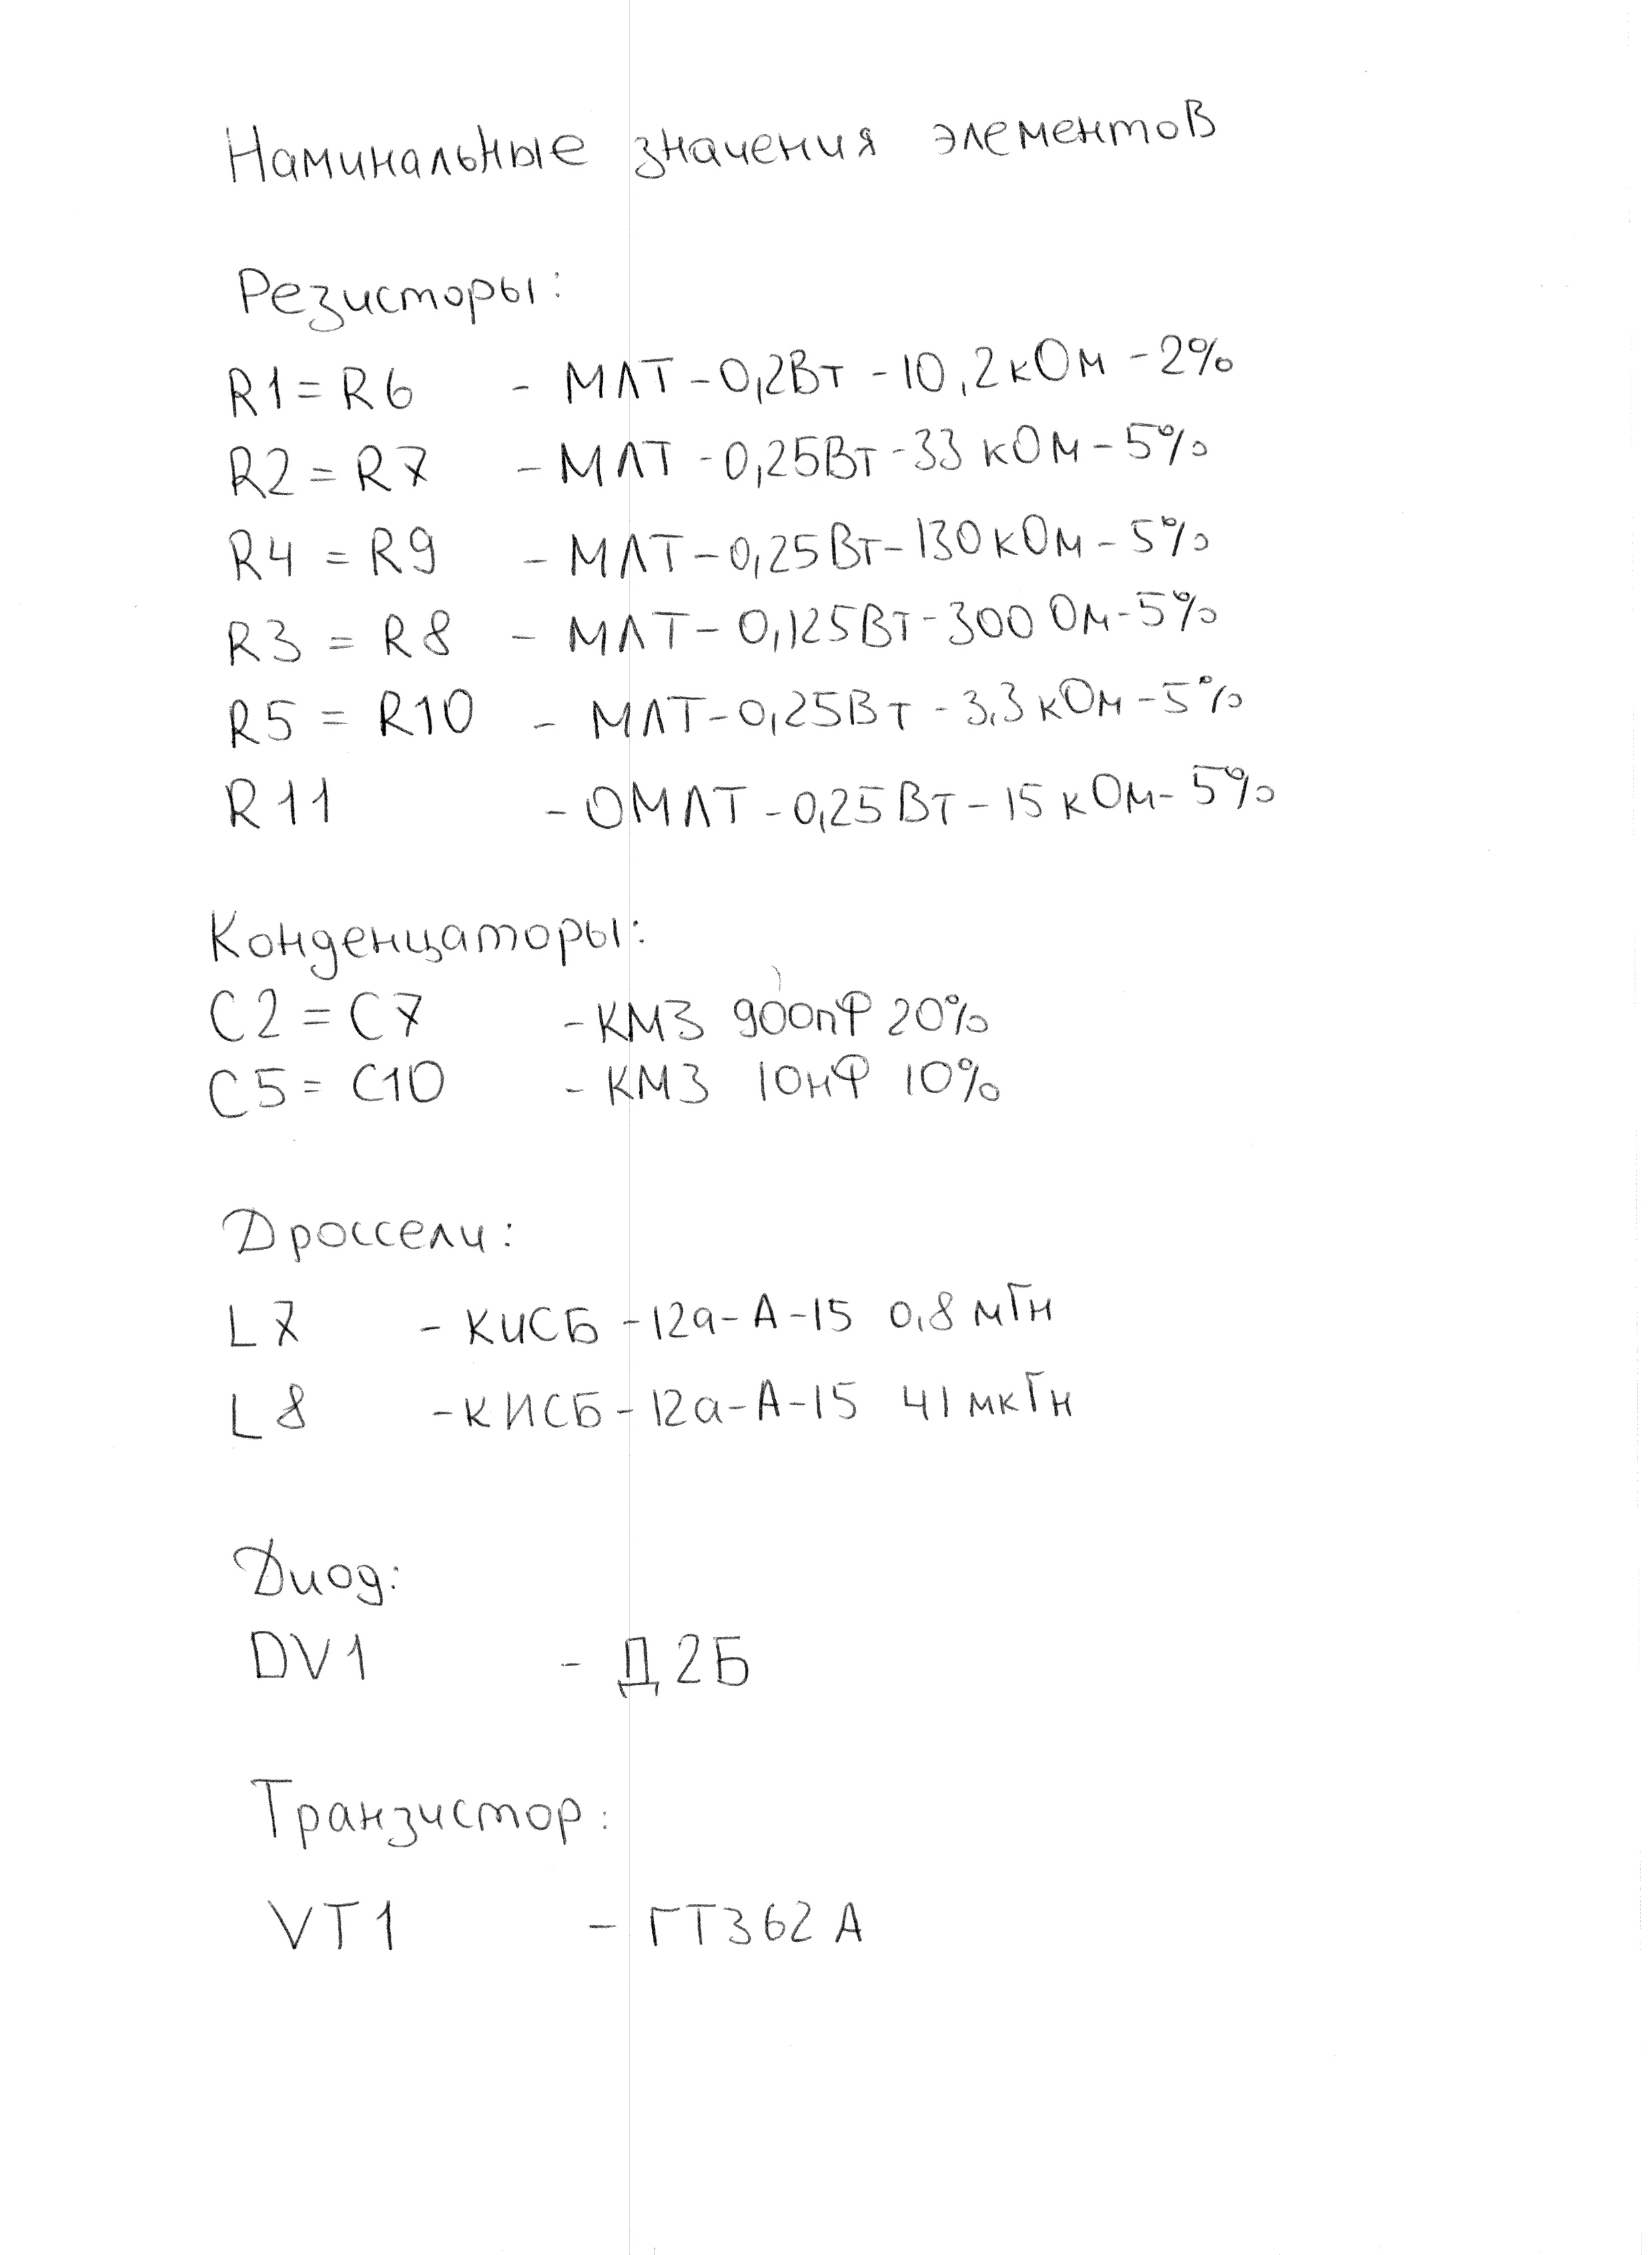 Наминальные значения элементов
Резисторы:
R1 = R6 - МЛТ - 0,2Вт - 10,2 кОм - 2%
R2 = R7 - МЛТ - 0,25Вт - 33 кОм - 5%
R4 = R9 - МЛТ - 0,25Вт - 130 кОм - 5%
R3 = R8 - МЛТ - 0,125Вт - 300 Ом - 5%
R5 = R10 - МЛТ - 0,25Вт - 3,3 кОм - 5%
R11 - ОМЛТ - 0,25Вт - 15 кОм - 5%
Конденцаторы:
C2 = C7 - КМ3 900пФ 20%
C5 = C10 - КМ3 10нФ 10%
Дроссели:
L7 - КИСБ - 12а - А - 15 0,8 мГн
L8 - КИСБ - 12а - А - 15 41 мкГн
Диод:
DV1 - Д2Б
Транзистор:
VT1 - ГТ362А